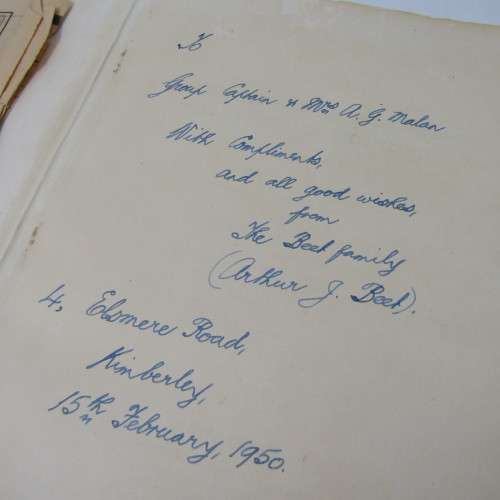 To
Group Captain & Mrs A. G. Malan
With Compliments,
and all good wishes,
from
The Beet family
(Arthur J. Beet).
4, Elsmere Road,
Kimberley,
15th February, 1950.